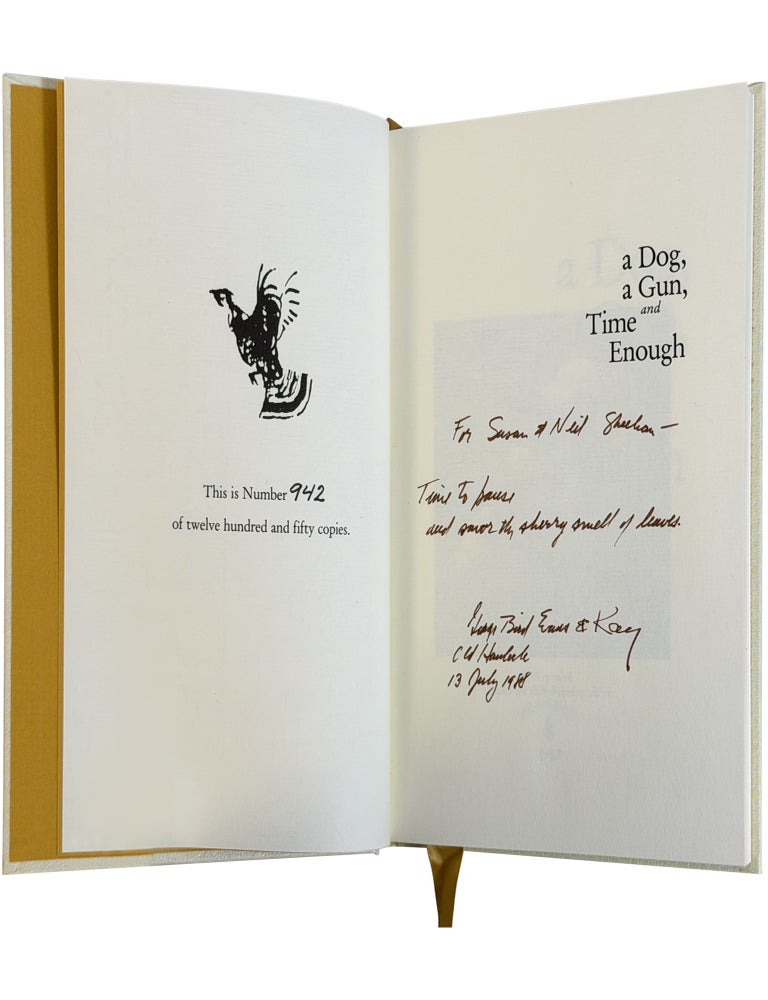 This is Number 942
of twelve hundred and fifty copies.
a Dog,
a Gun,
and
Time
Enough
For Susan & Neil Sheehan —
Time to pause
and savor the sherry smell of leaves.
George Bird Evans & Kay
Old Hemlock
13 July 1988